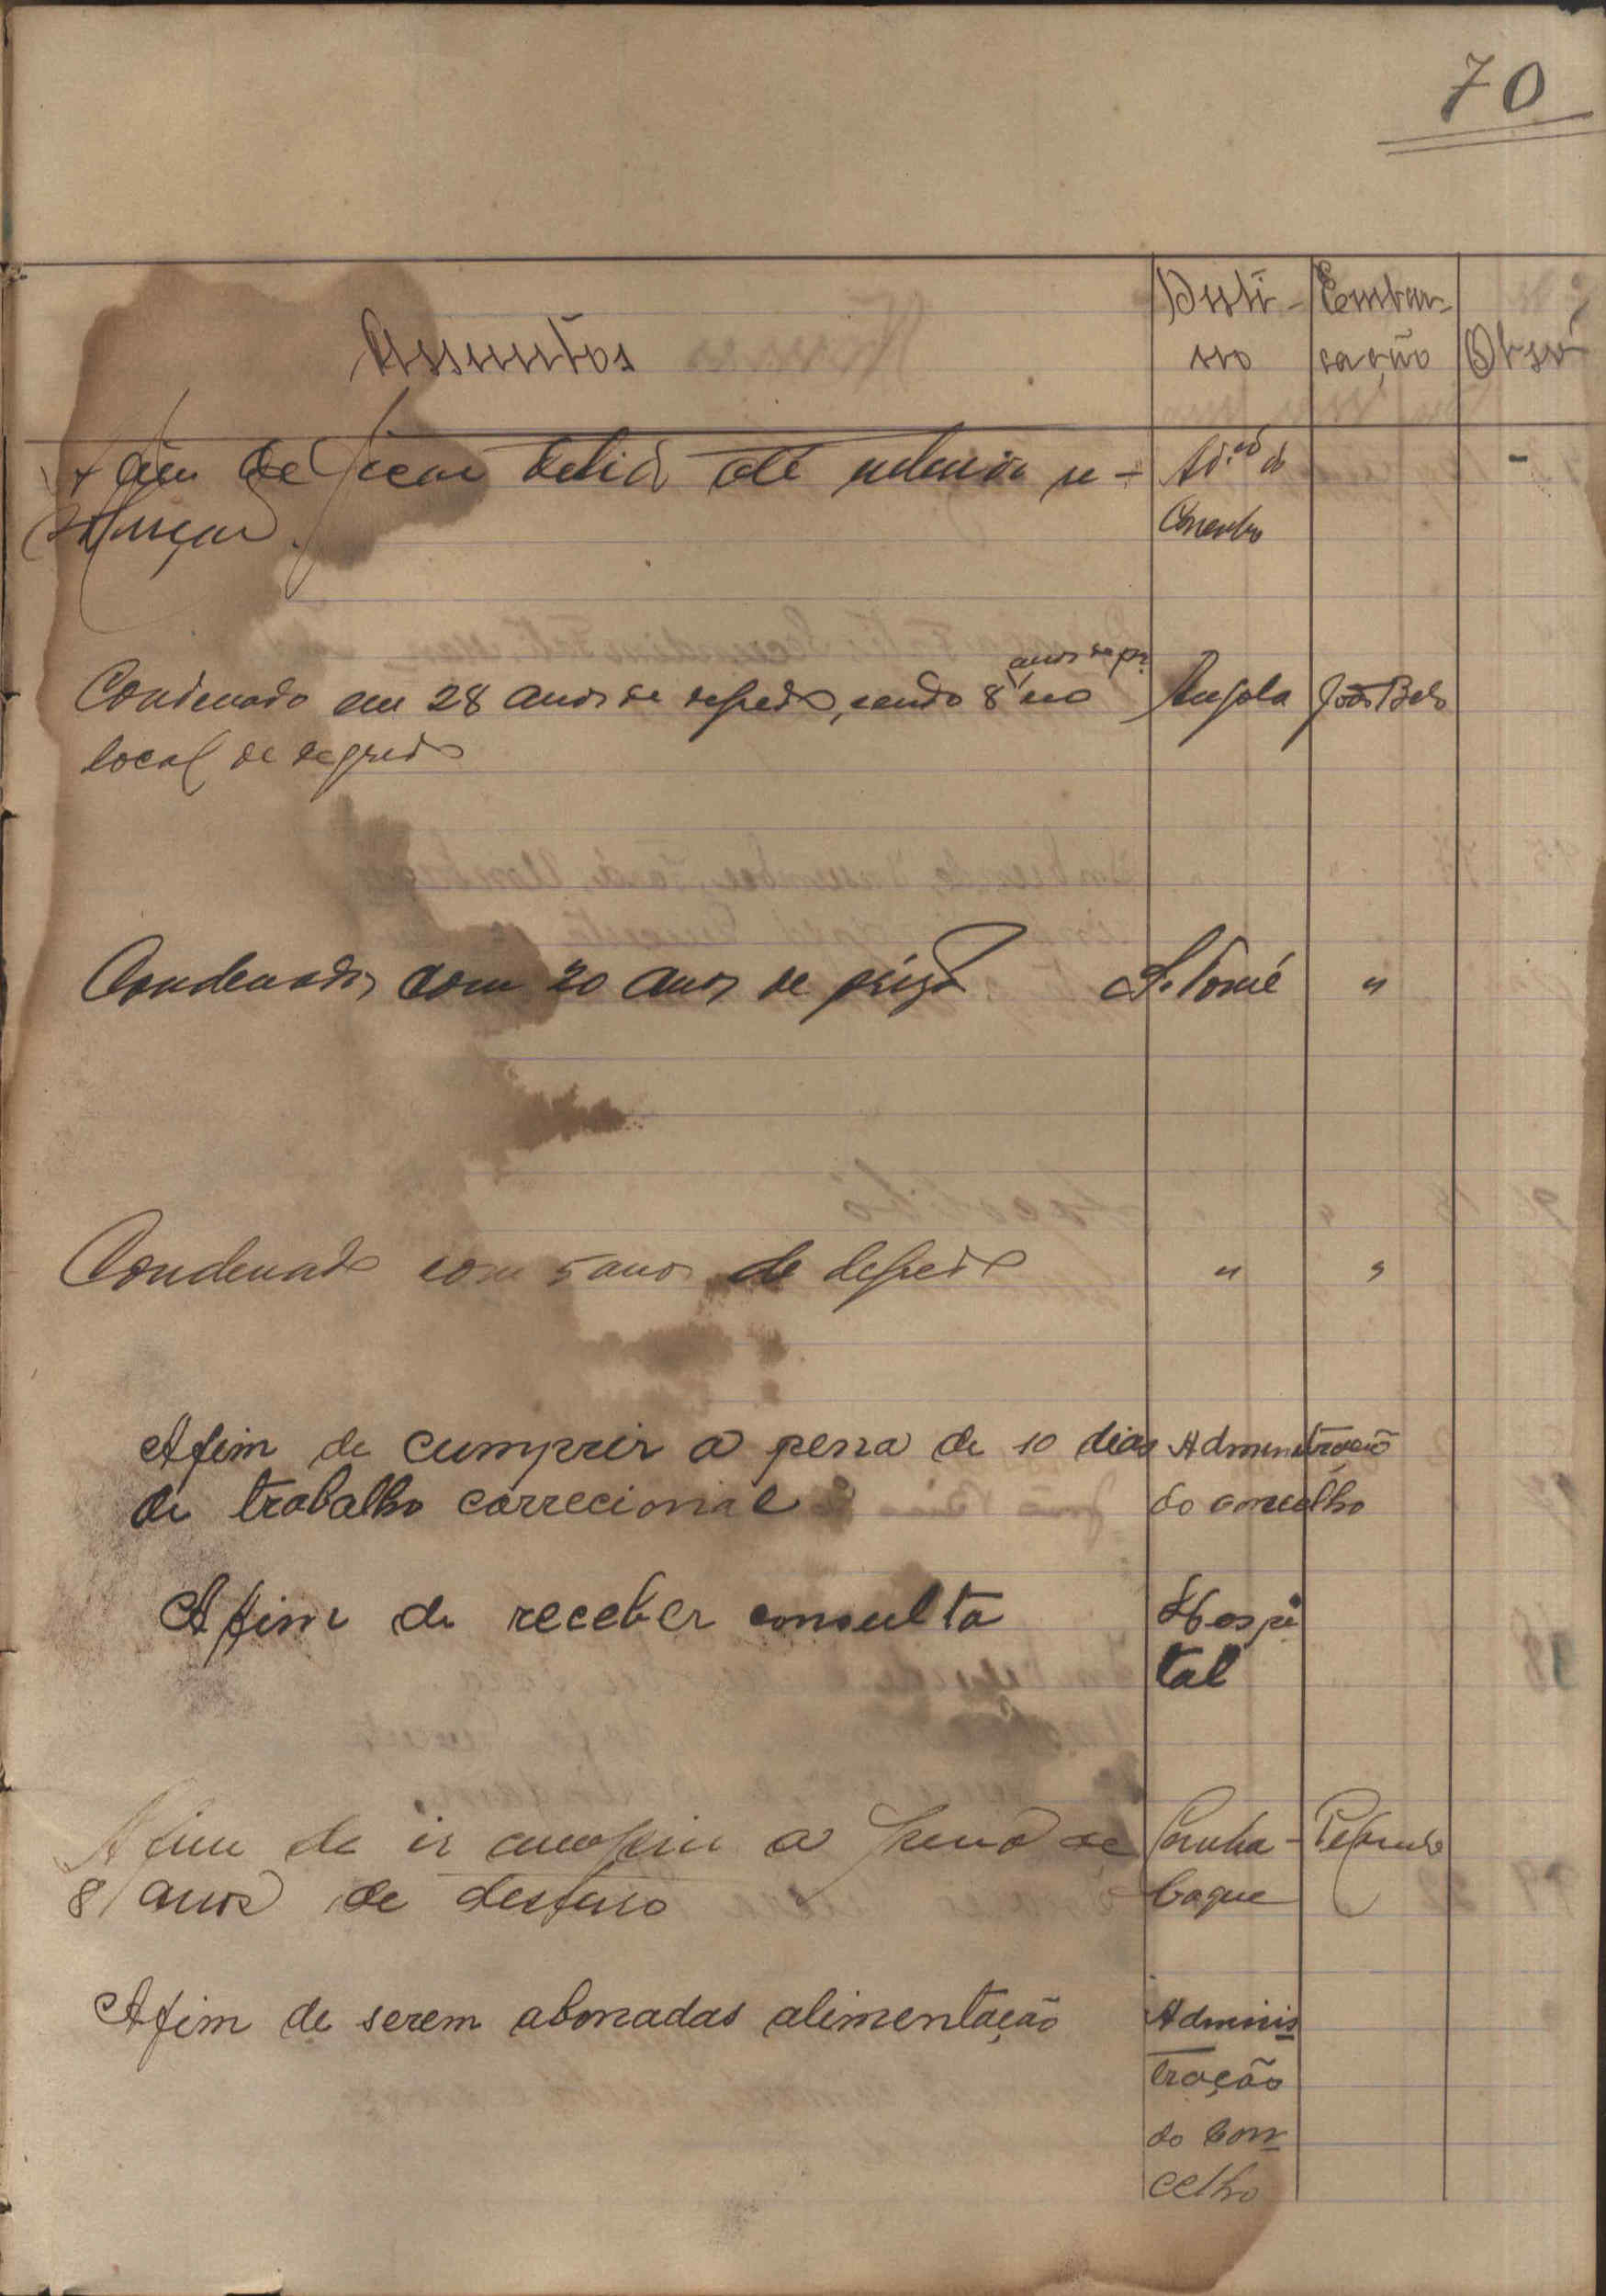 70
Assuntos
Desti-
no
Embar-
cação
Obser
Afim de ficar detido até ulterior re-
solução.
Ad.ão do
Concelho
Condenado em 28 anos de degredo, sendo 8 anos de pr. no
local de degredo
Angola
João Belo
Condenados com 20 anos de prisão
S. Tomé
"
Condenado com 5 anos de degredo
"
"
Afim de cumprir a pena de 10 dias
de trabalho correcional
Administração
do concelho
Afim de receber consulta
Hospi
tal
Afim de ir cumprir a pena de
8 anos de desterro
Canha-
baque
Afim de serem abonadas alimentação
Adminis
tração
do Con
celho